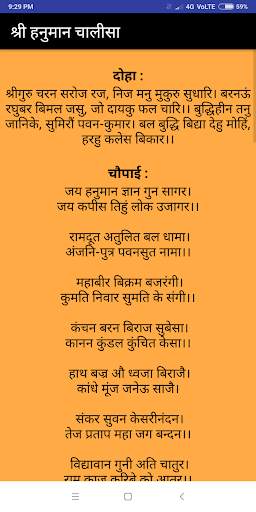 9:29 PM
4G VoLTE 59%
श्री हनुमान चालीसा
दोहा :
श्रीगुरु चरन सरोज रज, निज मनु मुकुरु सुधारि। बरनऊं
रघुबर बिमल जसु, जो दायकु फल चारि।। बुद्धिहीन तनु
जानिके, सुमिरौं पवन-कुमार। बल बुद्धि बिद्या देहु मोहिं,
हरहु कलेस बिकार।।
चौपाई :
जय हनुमान ज्ञान गुन सागर।
जय कपीस तिहुं लोक उजागर।।
रामदूत अतुलित बल धामा।
अंजनि-पुत्र पवनसुत नामा।।
महाबीर बिक्रम बजरंगी।
कुमति निवार सुमति के संगी।।
कंचन बरन बिराज सुबेसा।
कानन कुंडल कुंचित केसा।।
हाथ बज्र औ ध्वजा बिराजै।
कांधे मूंज जनेऊ साजै।
संकर सुवन केसरीनंदन।
तेज प्रताप महा जग बन्दन।।
विद्यावान गुनी अति चातुर।
राम काज करिबे को आतुर।।